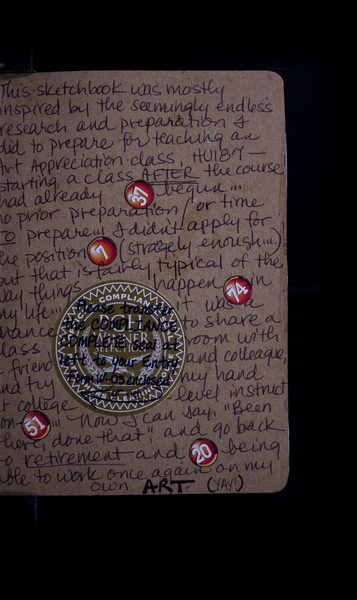 This sketchbook was mostly
inspired by the seemingly endless
research and preparation I
did to prepare for teaching an
Art Appreciation class, HU187 —
starting a class AFTER the course
had already 37 begun...
no prior preparation / or time
to prepare... I didn't apply for
the position 7 (strangely enough...)
but that is fairly typical of the
way things happen 74 in
my life... It was a
chance to share a
class room with
a friend and colleague,
and try my hand
at college level instruct
51 ... Now I can say, "Been
here, done that" and go back
to retirement and 20 being
able to work once again on my
own ART. (YAY!)
Please transfer
the COMPLIANCE
COMPLETE Seal at
left to your Entry
Form W-03 enclosed